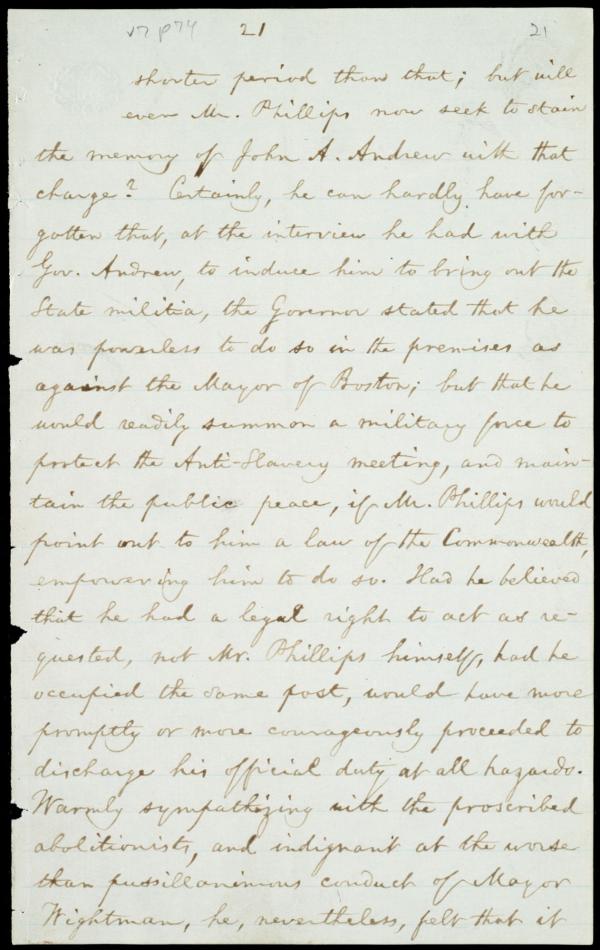 v7 p74 21 21
shorter period than that; but will
even Mr. Phillips now seek to stain
the memory of John A. Andrew with that
charge? Certainly, he can hardly have for-
gotten that, at the interview he had with
Gov. Andrew, to induce him to bring out the
State militia, the Governor stated that he
was powerless to do so in the premises as
against the Mayor of Boston; but that he
would readily summon a military force to
protect the Anti-Slavery meeting, and main-
tain the public peace, if Mr. Phillips would
point out to him a law of the Commonwealth,
empowering him to do so. Had he believed
that he had a legal right to act as re-
quested, not Mr. Phillips himself, had he
occupied the same post, would have more
promptly or more courageously proceeded to
discharge his official duty at all hazards.
Warmly sympathizing with the proscribed
abolitionists, and indignant at the worse
than pussillanimous conduct of Mayor
Wightman, he, nevertheless, felt that it